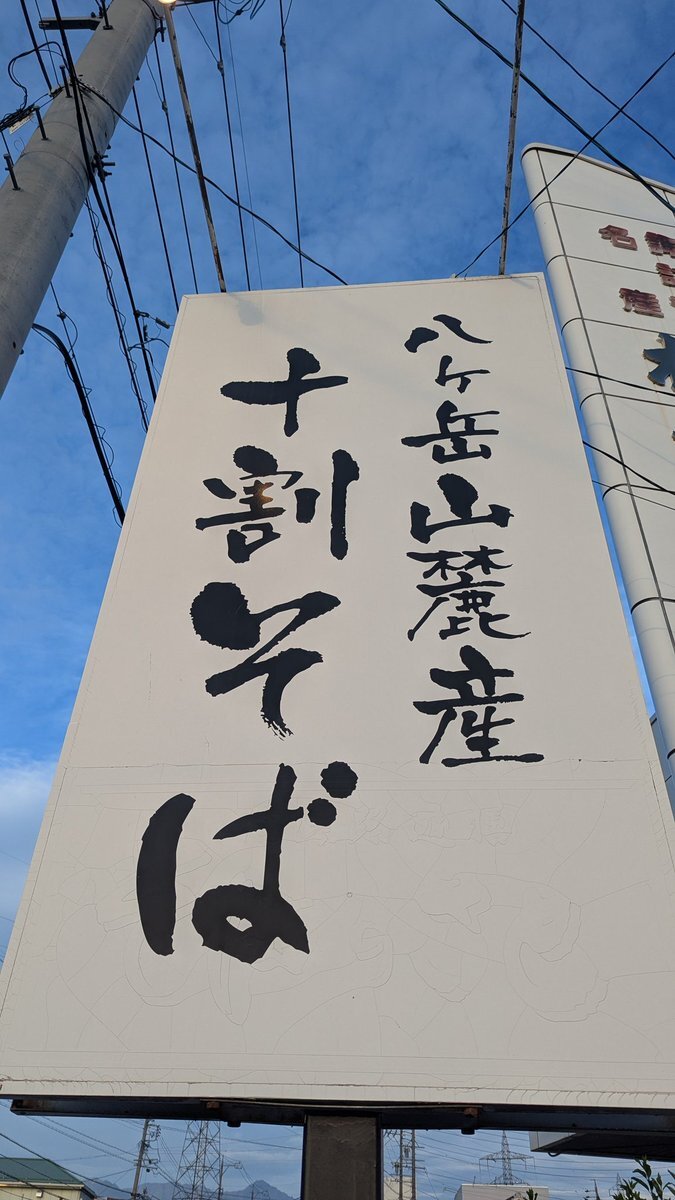 八ヶ岳山麓産
十割そば
名産